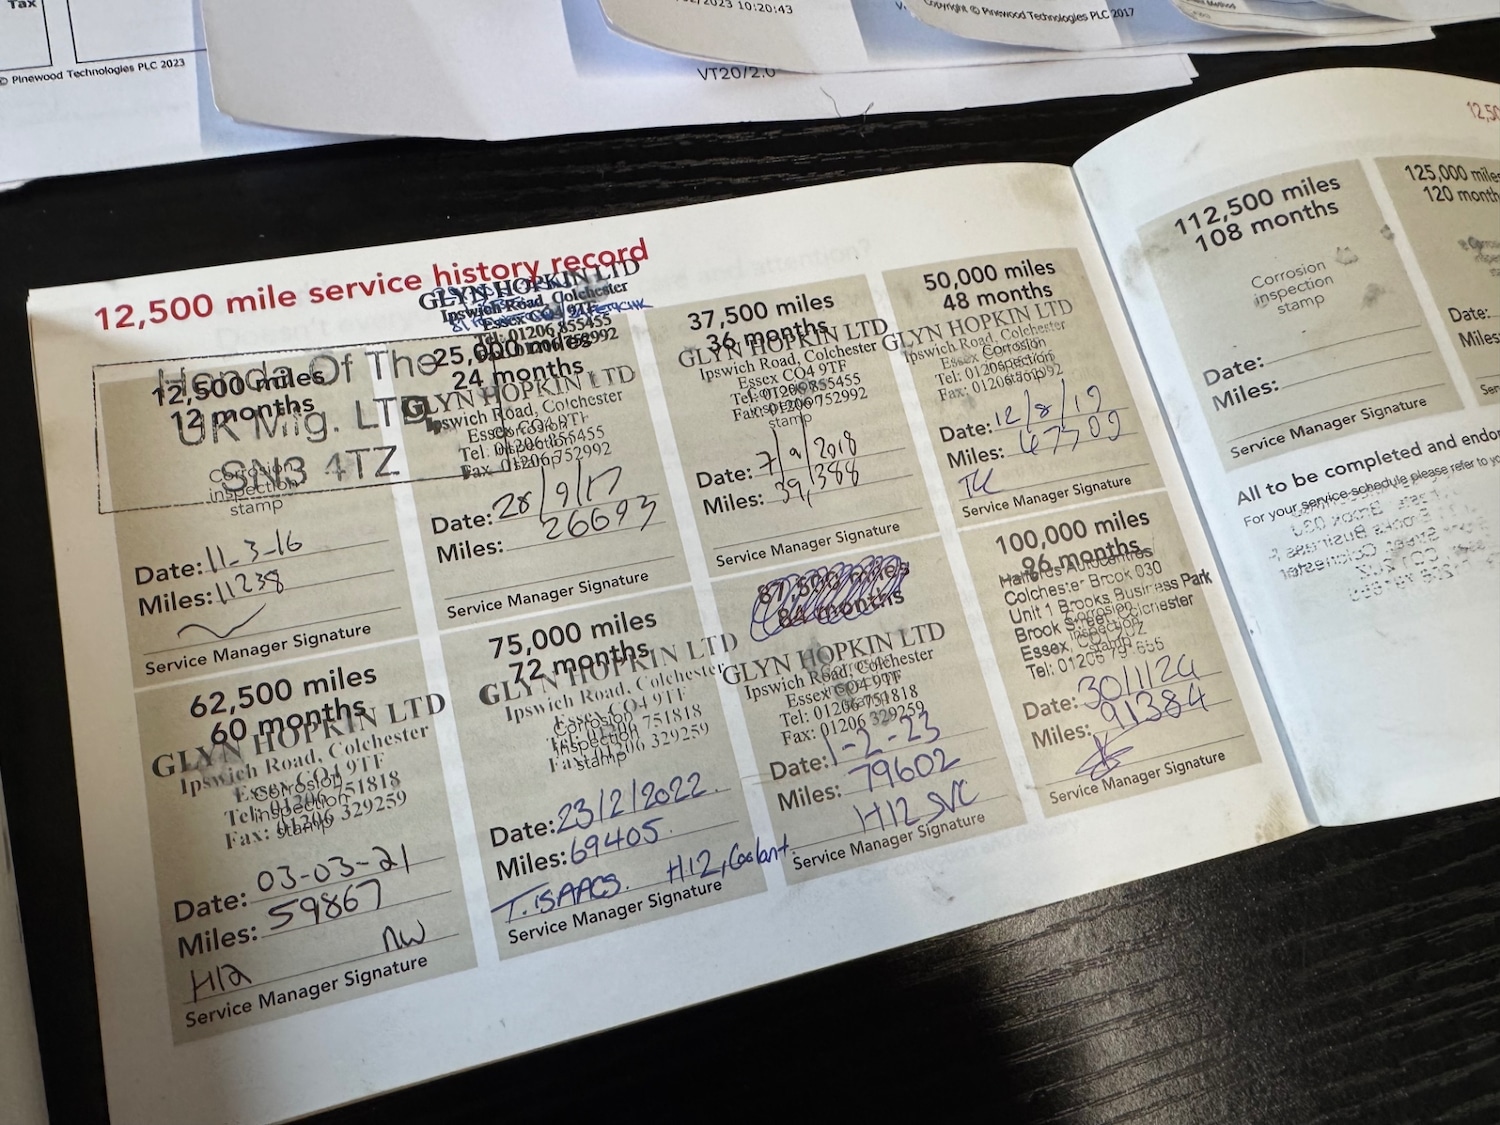 Tax
© Pinewood Technologies PLC 2023
/2023 10:20:43
VT20/2.0
Copyright © Pinewood Technologies PLC 2017
Method
12,500 mile service history record
GLYN HOPKIN LTD
Ipswich Road, Colchester
Essex CO4 9TF
Tel: 01206 855455
Fax: 01206 752992
Honda Of The
UK Mfg. LTD
SN3 4TZ
12,500 miles
12 months
Corrosion
inspection
stamp
Date: 11-3-16
Miles: 11238
Service Manager Signature
25,000 miles
24 months
GLYN HOPKIN LTD
Ipswich Road, Colchester
Essex CO4 9TF
Tel. 01206 855455
Fax. 01206 752992
Date: 28/9/17
Miles: 26693
Service Manager Signature
37,500 miles
36 months
GLYN HOPKIN LTD
Ipswich Road, Colchester
Essex CO4 9TF
Tel: 01206 855455
Fax: 01206 752992
stamp
Date: 7/9/2018
Miles: 39,388
Service Manager Signature
50,000 miles
48 months
GLYN HOPKIN LTD
Ipswich Road, Colchester
Essex
Corrosion
inspection
stamp
Date: 12/8/19
Miles: 47709
TK
Service Manager Signature
62,500 miles
60 months
GLYN HOPKIN LTD
Ipswich Road, Colchester
Essex CO4 9TF
Tel: 01206 751818
Fax: 01206 329259
Corrosion
inspection
stamp
Date: 03-03-21
Miles: 59867
H12 NW
Service Manager Signature
75,000 miles
72 months
GLYN HOPKIN LTD
Ipswich Road, Colchester
Essex CO4 9TF
Tel: 01206 751818
Fax: 01206 329259
Corrosion
inspection
stamp
Date: 23/2/2022.
Miles: 69405.
T. ISAACS. H12, Coolant.
Service Manager Signature
87,500 miles
84 months
GLYN HOPKIN LTD
Ipswich Road, Colchester
Essex CO4 9TF
Tel: 01206 751818
Fax: 01206 329259
Date: 1-2-23
Miles: 79602
H12 SVC
Service Manager Signature
100,000 miles
96 months
Halfords Autocentres
Colchester Brook 030
Unit 1 Brooks Business Park
Brook Street Colchester
Essex,
Corrosion
inspection
stamp
Date: 30/1/24
Miles: 91384
Service Manager Signature
112,500 miles
108 months
Corrosion
inspection
stamp
Date:
Miles:
Service Manager Signature
125,000 miles
120 month
Date:
Miles
All to be completed and endor
For your service schedule please refer to yo